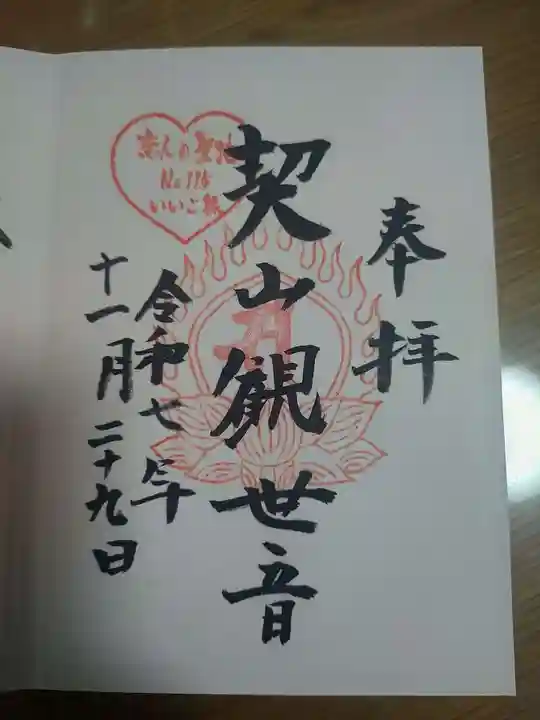 奉拝
契山観世音
令和七年
十一月二十九日
恋人の聖地
No115
いいご縁